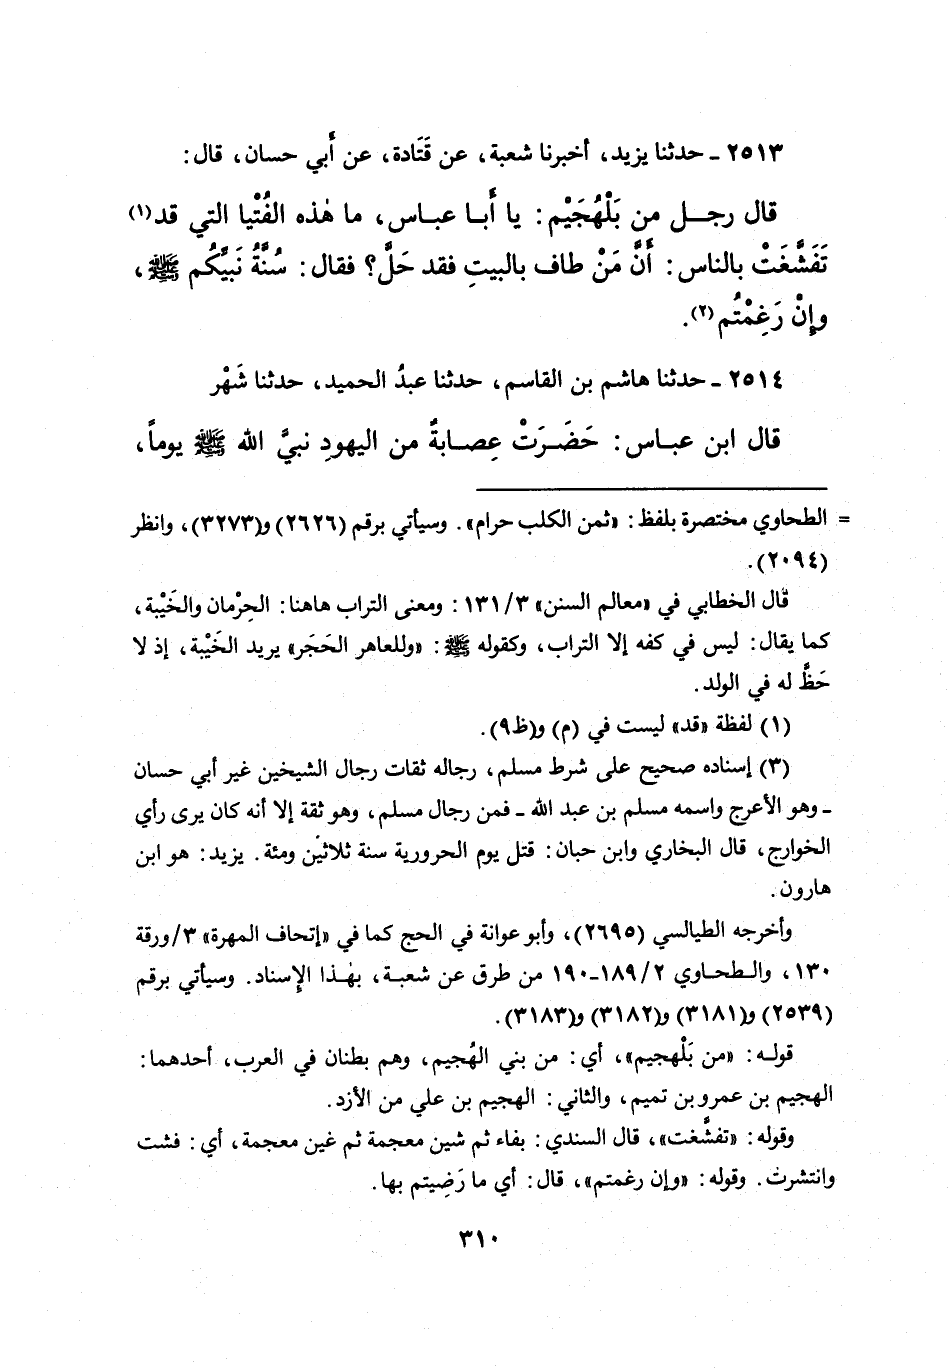 ٢٥١٣ ـ حدثنا يزيد، أخبرنا شعبة، عن قَتَادة، عن أَبي حسان، قال:
قال رجــل من بَلْهُجَيْم: يا أَبـا عبـاس، ما هٰذه الفُتْيا التي قد(١)
تَفَشَّغَتْ بالناس: أَنَّ مَنْ طاف بالبيتِ فقد حَلَّ؟ فقال: سُنَّةُ نَبيِّكُم ﷺ،
وإِنْ رَغِمْتُم(٢).
٢٥١٤ ـ حدثنا هاشم بن القاسم، حدثنا عبدُ الحميد، حدثنا شَهْر
قال ابن عبـاس: حَضَـرَتْ عِصـابةٌ من اليهودِ نبيَّ الله ﷺ يوماً،
= الطحاوي مختصرة بلفظ: «ثمن الكلب حرام». وسيأتي برقم (٢٦٢٦) و(٣٢٧٣)، وانظر
(٢٠٩٤).
قال الخطابي في «معالم السنن» ١٣١/٣: ومعنى التراب هاهنا: الحِرْمان والخَيْبة،
كما يقال: ليس في كفه إلا التراب، وكقوله ﷺ: «وللعاهر الحَجَر» يريد الخَيْبة، إذ لا
حَظَّ له في الولد.
(١) لفظة «قد» ليست في (م) و(ظ٩).
(٣) إسناده صحيح على شرط مسلم، رجاله ثقات رجال الشيخين غير أبي حسان
ـ وهو الأعرج واسمه مسلم بن عبد الله ـ فمن رجال مسلم، وهو ثقة إلا أنه كان يرى رأي
الخوارج، قال البخاري وابن حبان: قتل يوم الحرورية سنة ثلاثين ومئة. يزيد: هو ابن
هارون.
وأخرجه الطيالسي (٢٦٩٥)، وأبو عوانة في الحج كما في «إتحاف المهرة» ٣/ورقة
١٣٠، والـطحـاوي ١٨٩/٢-١٩٠ من طرق عن شعبـة، بهٰـذا الإسناد. وسيأتي برقم
(٢٥٣٩) و(٣١٨١) و(٣١٨٢) و(٣١٨٣).
قولـه: «من بَلْهجيم»، أي: من بني الهُجيم، وهم بطنان في العرب، أحدهما:
الهجيم بن عمرو بن تميم، والثاني: الهجيم بن علي من الأزد.
وقوله: «تفشَّغت»، قال السندي: بفاء ثم شين معجمة ثم غين معجمة، أي: فشت
وانتشرت. وقوله: «وإن رغمتم»، قال: أي ما رَضِيتم بها.
٣١٠